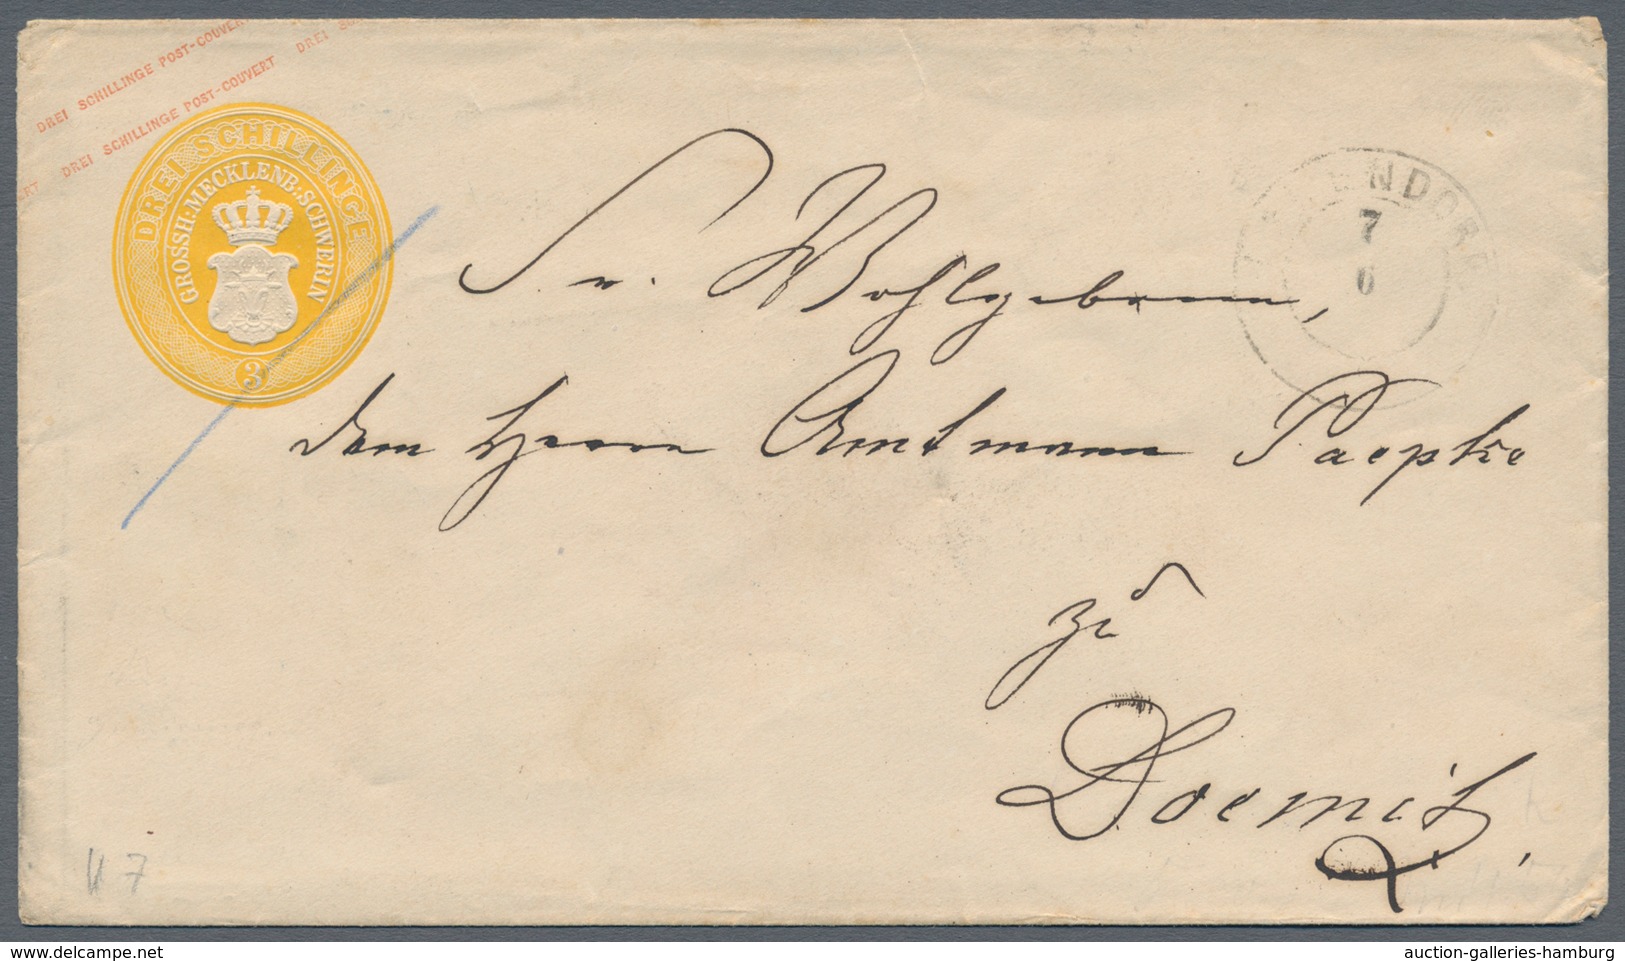 DREI SCHILLINGE POST-COUVERT DREI
DREI SCHILLINGE POST-COUVERT
DREI SCHILLINGE
GROSSH: MECKLENB: SCHWERIN
3
7
6
Sr. Wohlgeboren,
dem Herrn Amtmann Paepke
zu
Doemitz.
U 7
www.delcampe.net
auction-galleries-hamburg